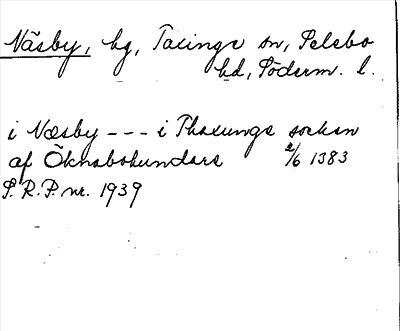 Näsby, by, Taxinge sn, Selebo
hd, Söderm. l.
i Næsby --- i Thaxunge sockan
af Öknabohundare 2/6 1383
S.R.P. nr. 1939